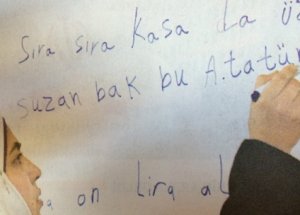 Sıra sıra Kasa La
suzan bak bu A.tatür
on lira al